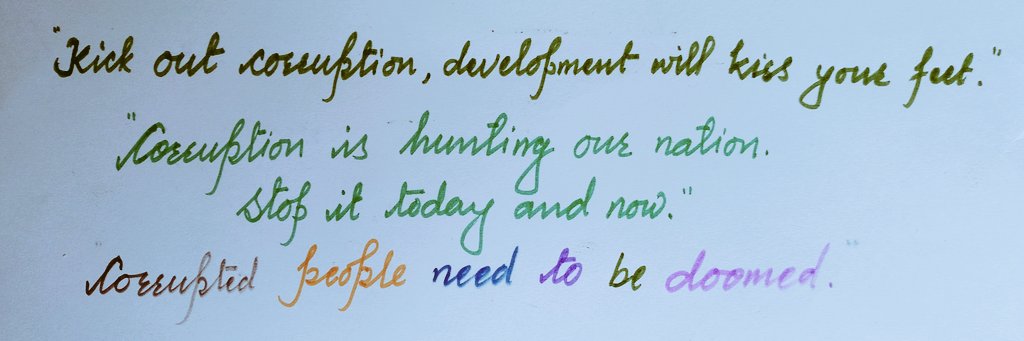 "Kick out corruption, development will kiss your feet."
"Corruption is hunting our nation.
Stop it today and now."
"Corrupted people need to be doomed."